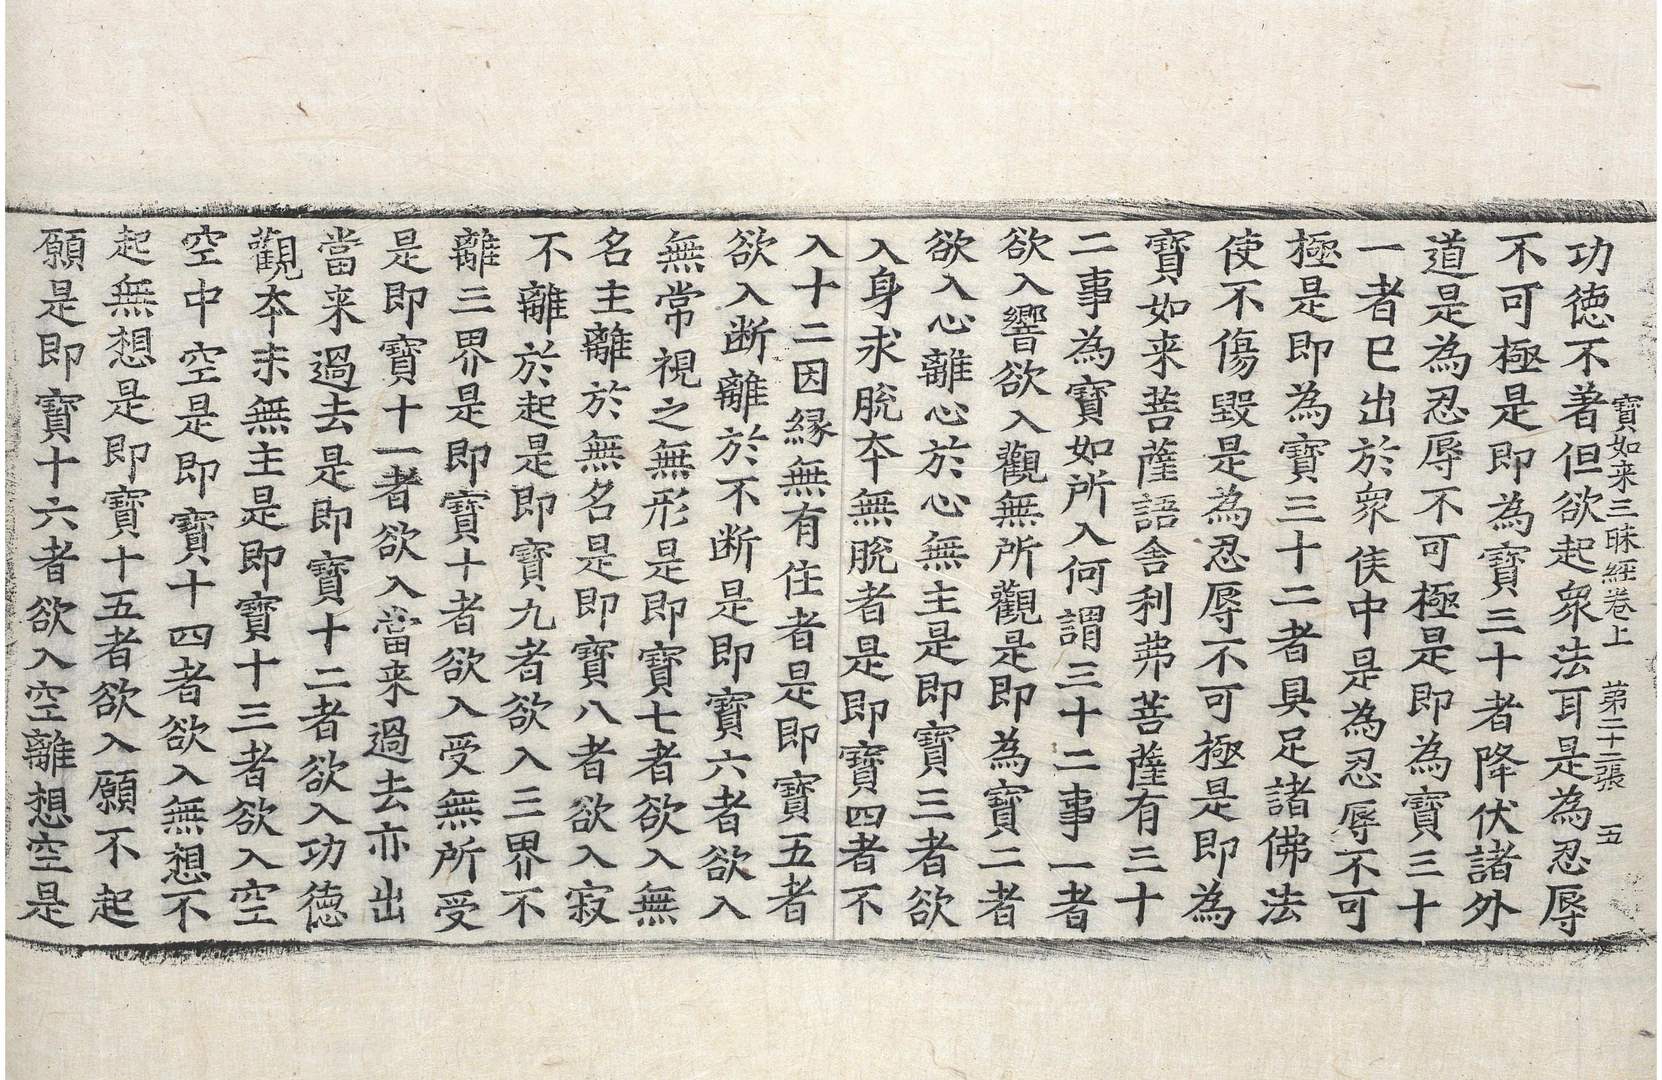 寶如来三昧經卷上　第二十三張　五
功德不著但欲起衆法耳是為忍辱
不可極是即為寶三十者降伏諸外
道是為忍辱不可極是即為寶三十
一者已出於衆俟中是為忍辱不可
極是即為寶三十二者具足諸佛法
使不傷毀是為忍辱不可極是即為
寶如来菩薩語舎利弗菩薩有三十
二事為寶如所入何謂三十二事一者
欲入響欲入觀無所觀是即為寶二者
欲入心離心於心無主是即寶三者欲
入身求脫夲無脫者是即寶四者不
入十二因緣無有住者是即寶五者
欲入断離於不断是即寶六者欲入
無常視之無形是即寶七者欲入無
名主離於無名是即寶八者欲入寂
不離於起是即寶九者欲入三界不
離三界是即寶十者欲入受無所受
是即寶十一者欲入當来過去亦出
當来過去是即寶十二者欲入功德
觀夲末無主是即寶十三者欲入空
空中空是即寶十四者欲入無想不
起無想是即寶十五者欲入願不起
願是即寶十六者欲入空離想空是